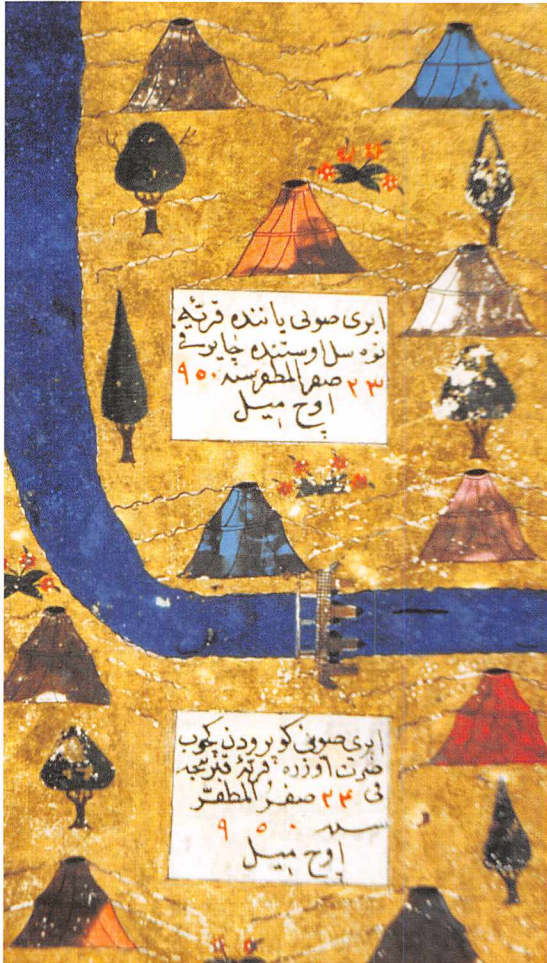 ایری صوئی یاننده قریه
اوستنده چایری
٢٣ صفر المظفر سنه ٩٥٠
اوچ میل
ایری صوئی کوپرودن کچوب
صرت اوزره قریه
نی ٢٤ صفر المظفر
سنه ٩٥٠
اوچ میل